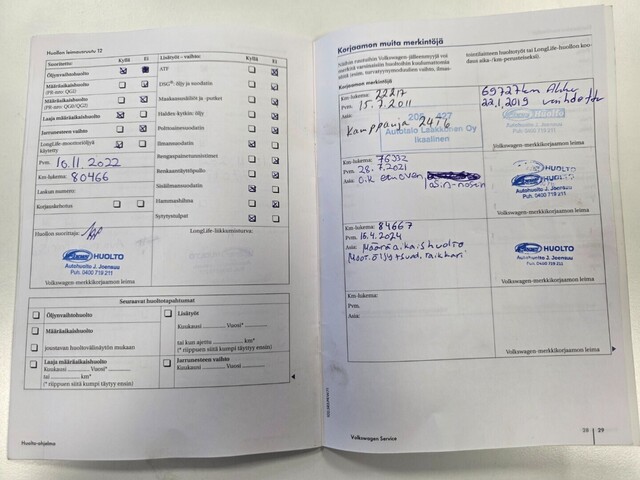 Huollon leimausruutu 12
Suoritettu: Kyllä Ei
Öljynvaihtohuolto
(PR-nro: QG2)
Määräaikaishuolto
(PR-nro: QG1)
Määräaikaishuolto
(PR-nro: QG0/QG2)
Laaja määräaikaishuolto
Jarrunesteen vaihto
LongLife-moottoriöljyä
käytetty
Pvm. 16.11.2022
Km-lukema: 80466
Laskun numero:
Korjauskehotus
Huollon suorittaja:
HUOLTO
Autohuolto J. Joensuu
Puh. 0400 719 211
Volkswagen-merkkikorjaamon leima
Lisätyöt - vaihto: Kyllä Ei
ATF
DSG®: öljy ja suodatin
Haldex-kytkin: öljy
Polttoainesuodatin
Ilmansuodatin
Rengaspaineen
Renkaantäyttöpullo
Sisäilmansuodatin
Hammashihna
Sytytystulpat
LongLife-liikkumisturva:
Seuraavat huoltotapahtumat
Öljynvaihtohuolto
Määräaikaishuolto
joustavan huoltovälinäytön mukaan
Laaja määräaikaishuolto
Kuukausi Vuosi*
tai km*
(* riippuen siitä kumpi täytyy ensin)
Lisätyöt
Kuukausi Vuosi*
tai kun ajettu km*
(* riippuen siitä kumpi täytyy ensin)
Jarrunesteen vaihto
Kuukausi Vuosi
Huolto-ohjelma
Korjaamon muita merkintöjä
Näihin ruutuihin Volkswagen-jälleenmyyjä voi
merkitä varsinaisiin huoltoihin kuulumattomia
töitä (esim. turvatyynymoduulien vaihto, ilmas-
tointilaitteen huoltotyöt tai LongLife-huollon koo-
daus aika-/km-perusteiseksi).
Korjaamon merkintöjä
Km-lukema: 22217
Pvm. 15.7.2011
Asia:
Kamppanja 2476
Autotalo Laakkonen Oy
Ikaalinen
69727km
22.1.2019
HUOLTO
0400 719 211
Volkswagen-merkkikorjaamon leima
Km-lukema: 76332
Pvm. 28.7.2021
Asia: o.k etuoven
HUOLTO
Autohuolto J. Joensuu
Puh. 0400 719 211
Volkswagen-merkkikorjaamon leima
Km-lukema: 84667
Pvm. 16.4.2024
Asia: Määräaikaishuolto
Moot.öljy+suod.
HUOLTO
Autohuolto J. Joensuu
Puh. 0400 719 211
Volkswagen-merkkikorjaamon leima
Km-lukema:
Pvm.
Asia:
Volkswagen-merkkikorjaamon leima
Volkswagen Service
28 29